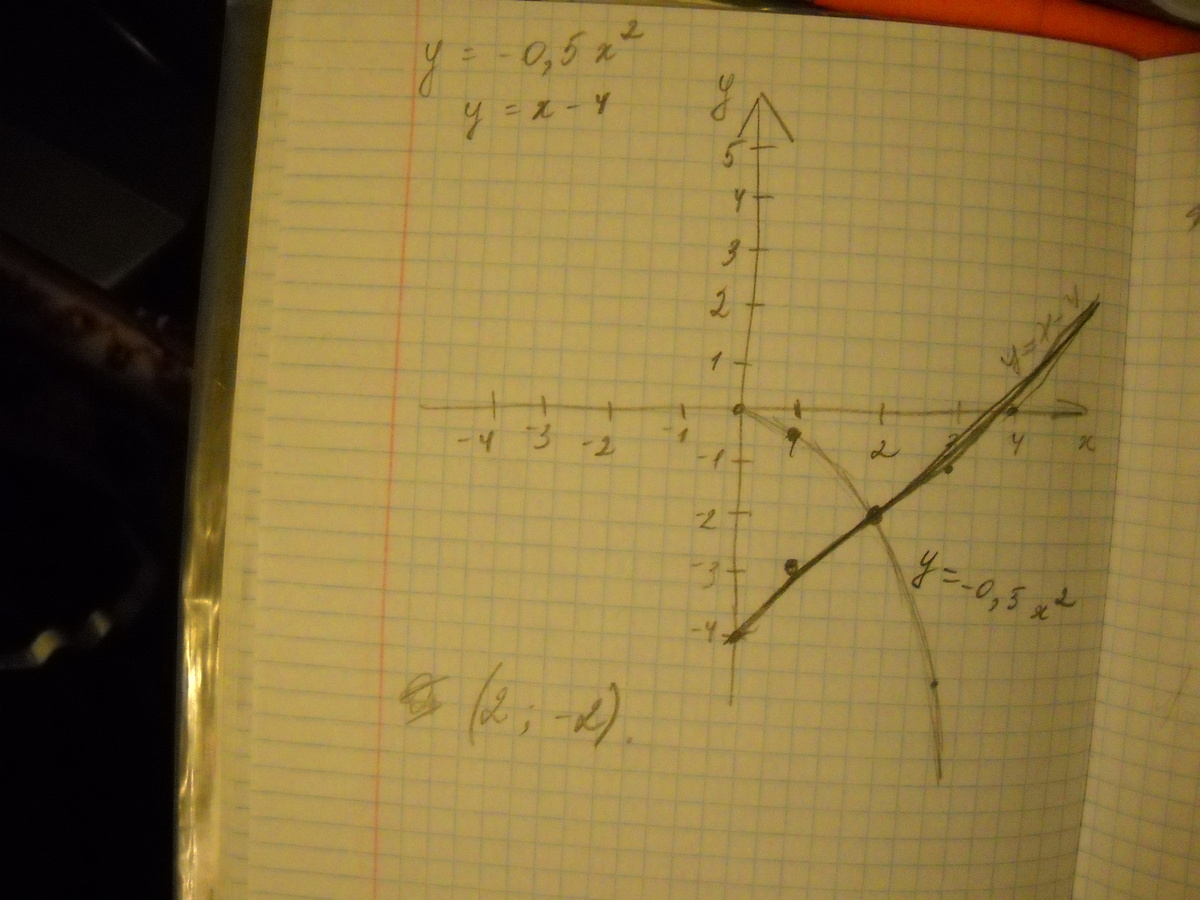 y = -0,5x²
y = x - 4
y
5
4
3
2
1
-4 -3 -2 -1 1 2 3 4 x
-1
-2
-3
-4
y=x-4
y=-0,5x²
(2; -2).